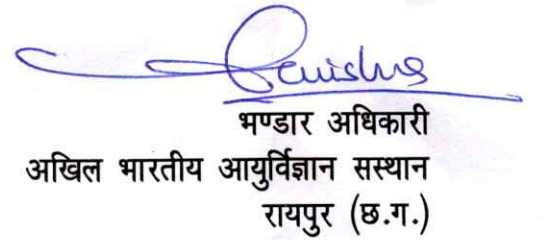 भण्डार अधिकारी
अखिल भारतीय आयुर्विज्ञान सस्थान
रायपुर (छ.ग.)